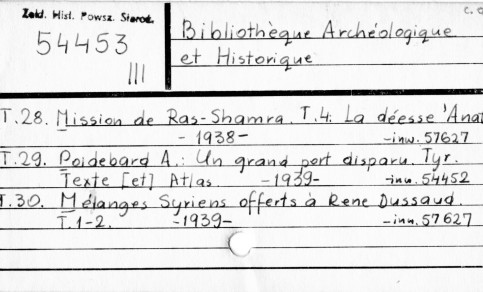 Zakł. Hist. Powsz. Staroż.
54453
III
Bibliothèque Archéologique
et Historique
T.28. Mission de Ras-Shamra. T.4: La déesse 'Anat
- 1938- -inw. 57627
T.29. Poidebard A.: Un grand port disparu. Tyr.
Texte [et] Atlas. -1939- -inw. 54452
T.30. Mélanges Syriens offerts à Rene Dussaud.
T.1-2. -1939- -inw. 57627